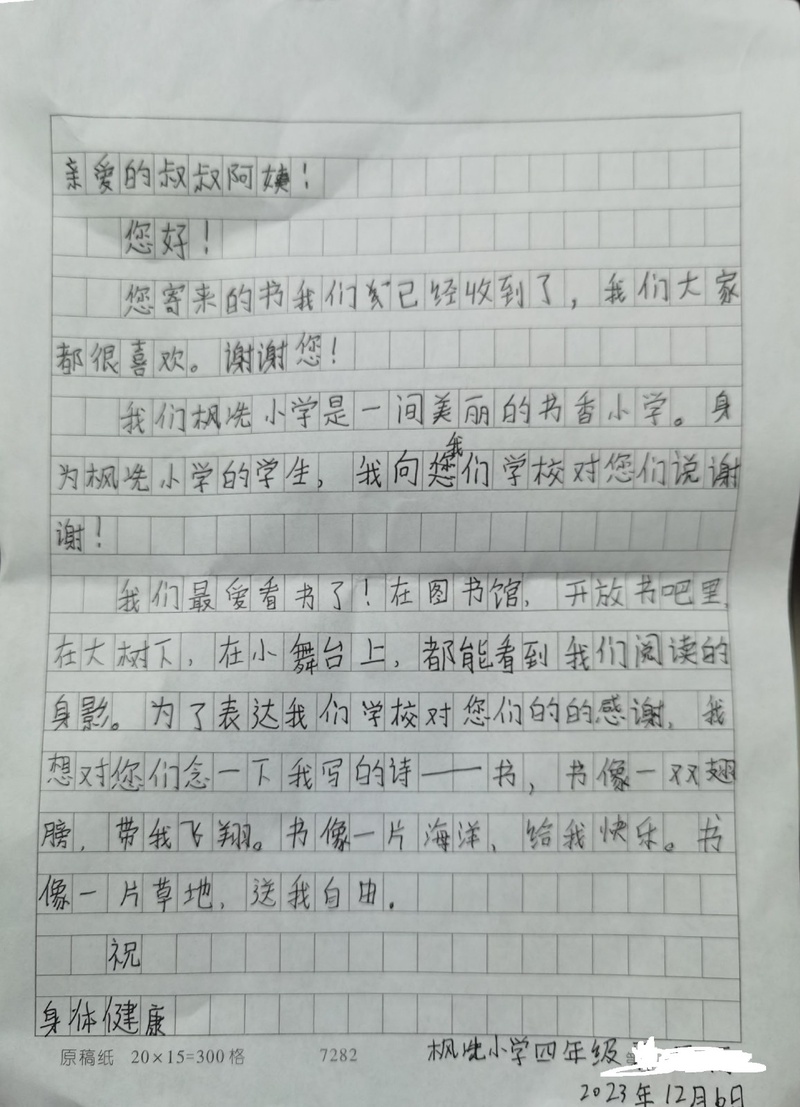 亲爱的叔叔阿姨！
您好！
您寄来的书我们已经收到了，我们大家
都很喜欢。谢谢您！
我们枫冼小学是一间美丽的书香小学。身
为枫冼小学的学生，我向我们学校对您们说谢
谢！
我们最爱看书了！在图书馆，开放书吧里，
在大树下，在小舞台上，都能看到我们阅读的
身影。为了表达我们学校对您们的的感谢，我
想对您们念一下我写的诗——书，书像一双翅
膀，带我飞翔。书像一片海洋，给我快乐。书
像一片草地，送我自由。
祝
身体健康
原稿纸 20×15=300格 7282
枫冼小学四年级
2023年12月6日